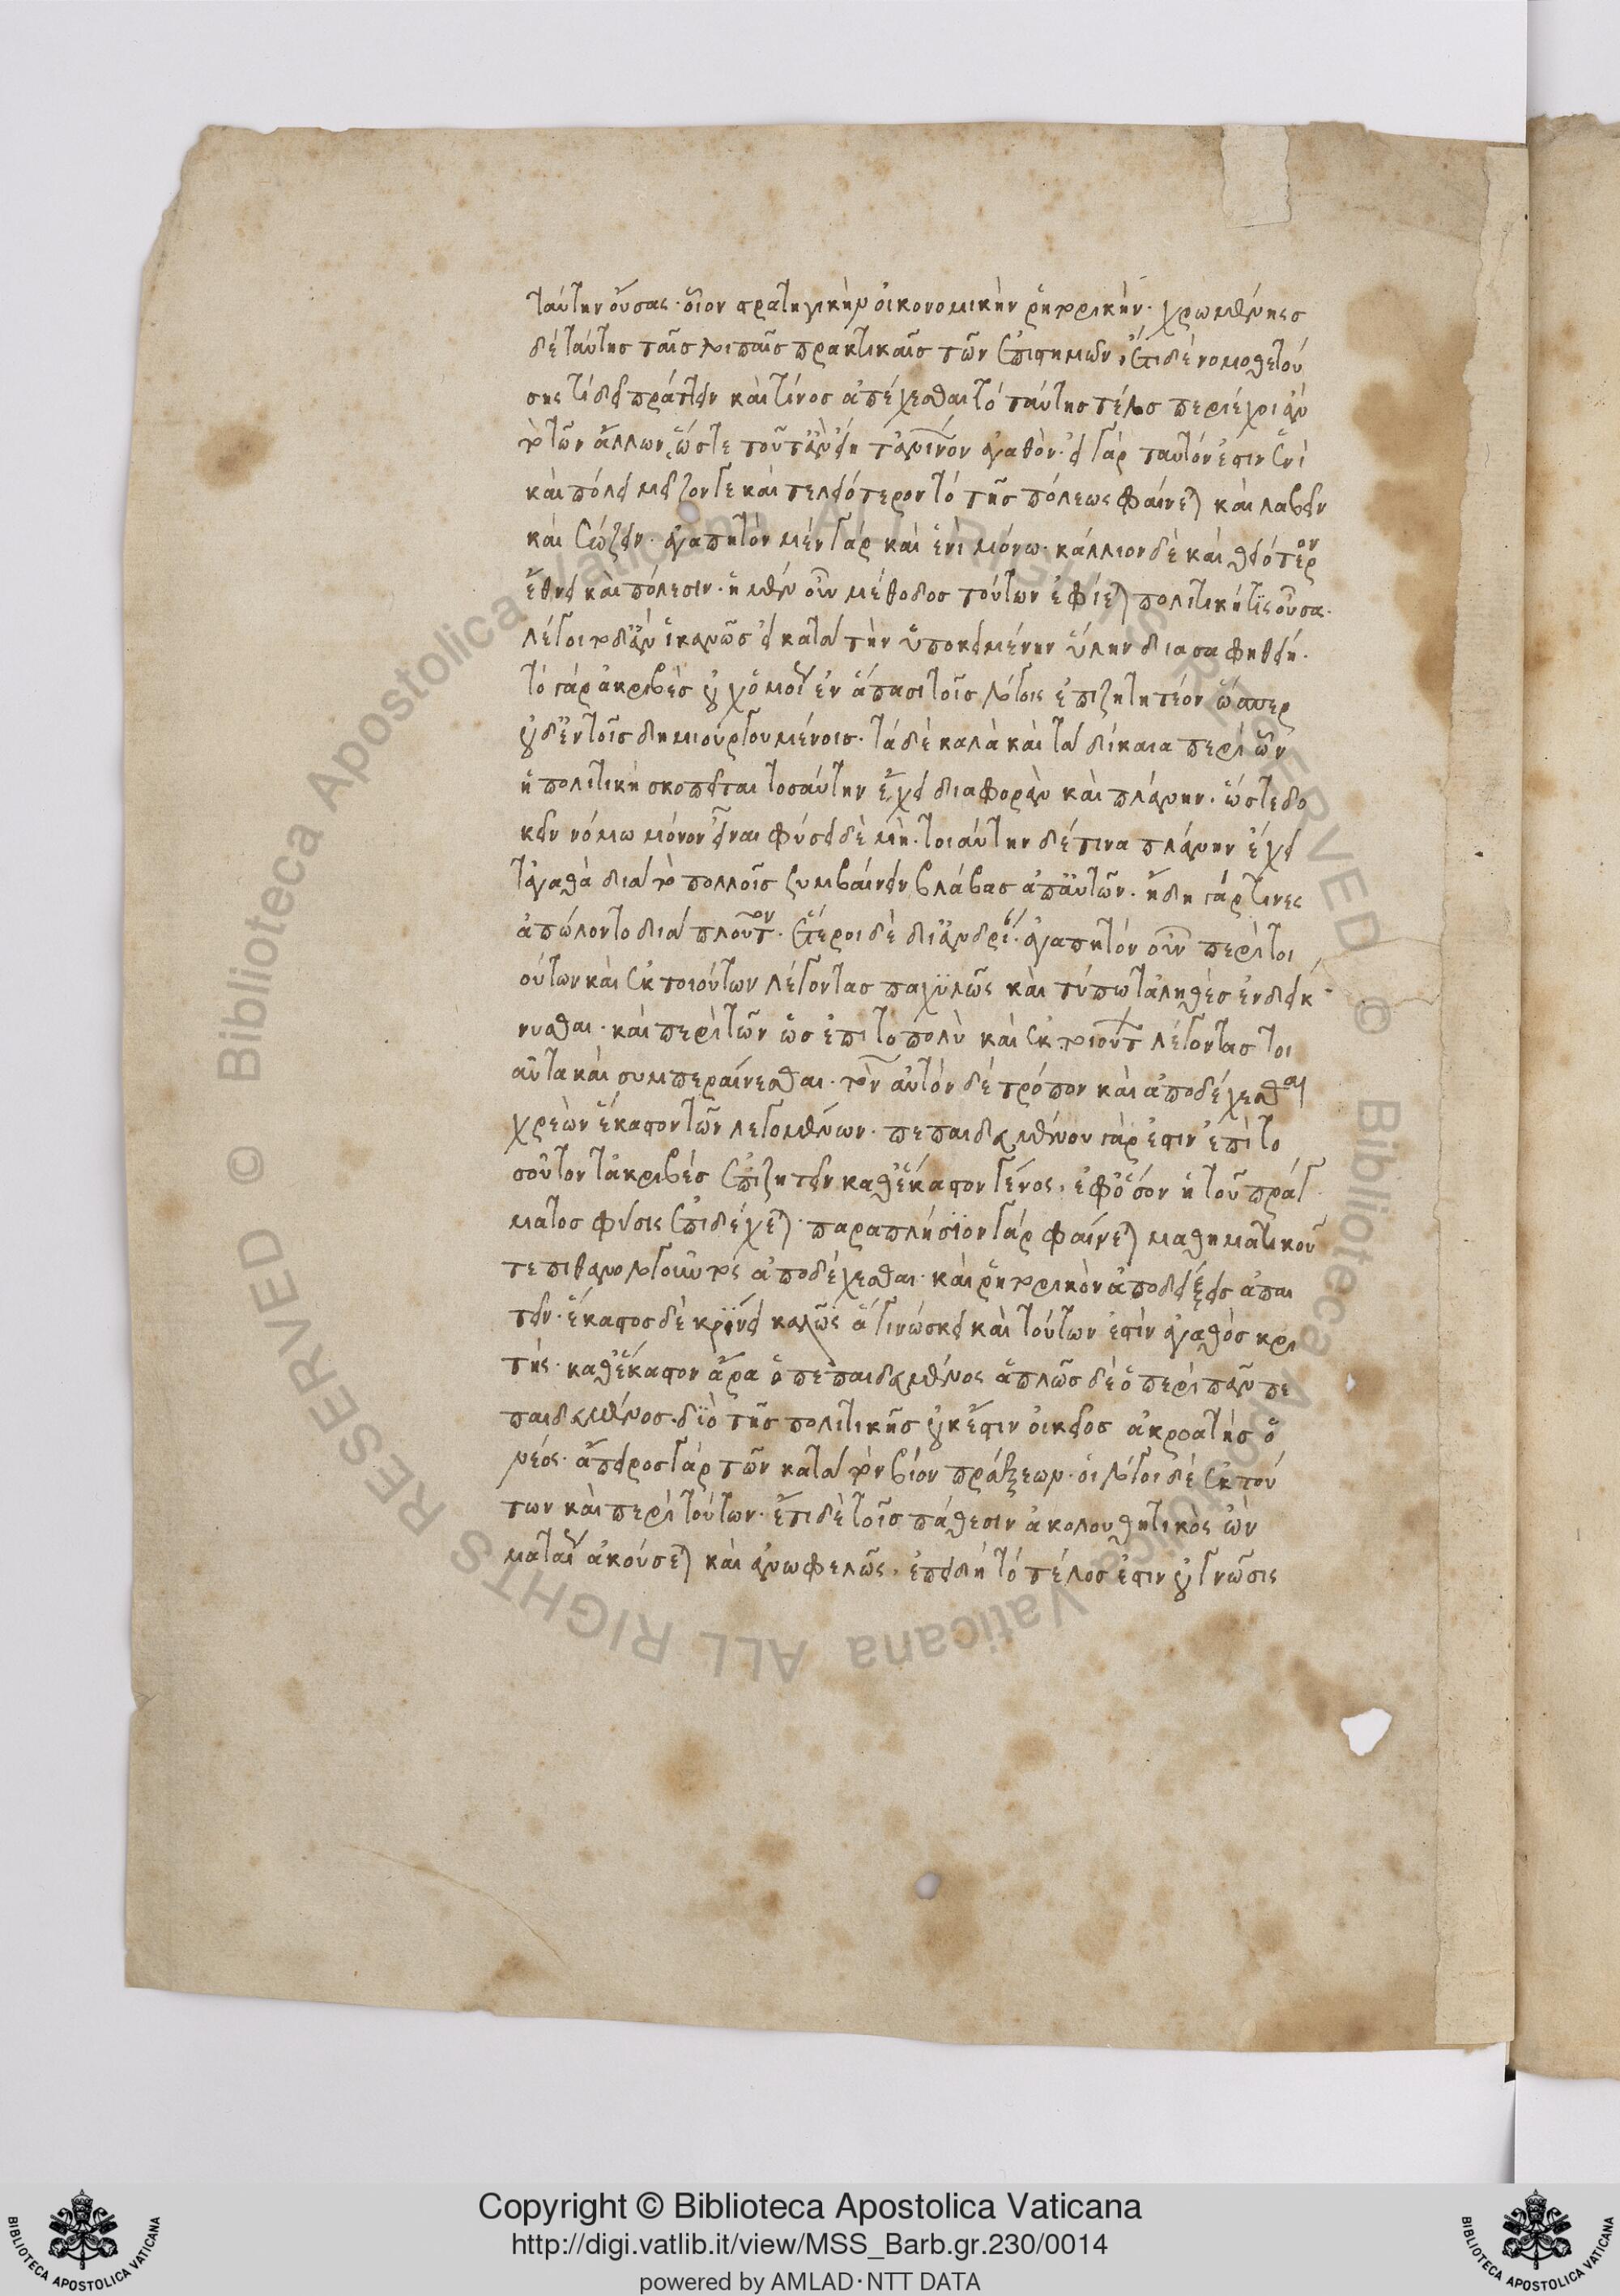 ταύτην οὔσας· οἷον στρατηγικὴν οἰκονομικὴν ῥητορικήν· χρωμένης
δὲ ταύτης ταῖς λοιπαῖς πρακτικαῖς τῶν ἐπιστημῶν, ἔτι δὲ νομοθετού
σης τί δεῖ πράττειν καὶ τίνος ἀπέχεσθαι τὸ ταύτης τέλος περιέχοι ἂν
τὸ τῶν ἄλλων, ὥστε τοῦτ' ἂν εἴη τἀνθρώπινον ἀγαθόν· εἰ γὰρ ταυτόν ἐστιν ἑνὶ
καὶ πόλει μεῖζόν τε καὶ τελειότερον τὸ τῆς πόλεως φαίνεται καὶ λαβεῖν
καὶ σώζειν· ἀγαπητὸν μὲν γὰρ καὶ ἑνὶ μόνω· κάλλιον δὲ καὶ θειότερον
ἔθνει καὶ πόλεσιν· ἡ μὲν οὖν μέθοδος τούτων ἐφίεται πολιτική τις οὖσα·
λέγοιτο δ' ἂν ἱκανῶς εἰ κατὰ τὴν ὑποκειμένην ὕλην διασαφηθείη·
τὸ γὰρ ἀκριβὲς οὐχ ὁμοίως ἐν ἅπασι τοῖς λόγοις ἐπιζητητέον ὥσπερ
οὐδ' ἐν τοῖς δημιουργουμένοις· τὰ δὲ καλὰ καὶ τὰ δίκαια περὶ ὧν
ἡ πολιτικὴ σκοπεῖται τοσαύτην ἔχει διαφορὰν καὶ πλάνην· ὥστε δο
κεῖν νόμω μόνον εἶναι φύσει δὲ μή· τοιαύτην δέ τινα πλάνην ἔχει
τἀγαθὰ διὰ τὸ πολλοῖς συμβαίνειν βλάβας ἀπ' αὐτῶν· ἤδη γάρ τινες
ἀπώλοντο διὰ πλοῦτον· ἕτεροι δὲ δι' ἀνδρείαν· ἀγαπητὸν οὖν περὶ τοι
ούτων καὶ ἐκ τοιούτων λέγοντας παχυλῶς καὶ τύπω τἀληθὲς ἐνδείκ
νυσθαι· καὶ περὶ τῶν ὡς ἐπὶ τὸ πολὺ καὶ ἐκ τοιούτων λέγοντας τοι
αῦτα καὶ συμπεραίνεσθαι· τὸν αὐτὸν δὲ τρόπον καὶ ἀποδέχεσθαι
χρεὼν ἕκαστον τῶν λεγομένων· πεπαιδευμένου γάρ ἐστιν ἐπὶ το
σοῦτον τἀκριβὲς ἐπιζητεῖν καθ' ἕκαστον γένος, ἐφ' ὅσον ἡ τοῦ πράγ
ματος φύσις ἐπιδέχεται· παραπλήσιον γὰρ φαίνεται μαθηματικοῦ
τε πιθανολογοῦντος ἀποδέχεσθαι· καὶ ῥητορικὸν ἀποδείξεις ἀπαι
τεῖν· ἕκαστος δὲ κρίνει καλῶς ἃ γινώσκει καὶ τούτων ἐστὶν ἀγαθὸς κρι
τής· καθ' ἕκαστον ἄρα ὁ πεπαιδευμένος ἁπλῶς δὲ ὁ περὶ πᾶν πε
παιδευμένος· διὸ τῆς πολιτικῆς οὐκ ἔστιν οἰκεῖος ἀκροατὴς ὁ
νέος· ἄπειρος γὰρ τῶν κατὰ τὸν βίον πράξεων· οἱ λόγοι δὲ ἐκ τού
των καὶ περὶ τούτων· ἔτι δὲ τοῖς πάθεσιν ἀκολουθητικὸς ὢν
ματαίως ἀκούσεται καὶ ἀνωφελῶς, ἐπειδὴ τὸ τέλος ἐστὶν οὐ γνῶσις
© Biblioteca Apostolica Vaticana ALL RIGHTS RESERVED © Biblioteca Apostolica Vaticana ALL RIGHTS RESERVED
Copyright © Biblioteca Apostolica Vaticana
http://digi.vatlib.it/view/MSS_Barb.gr.230/0014
powered by AMLAD·NTT DATA
BIBLIOTECA APOSTOLICA VATICANA
BIBLIOTECA APOSTOLICA VATICANA